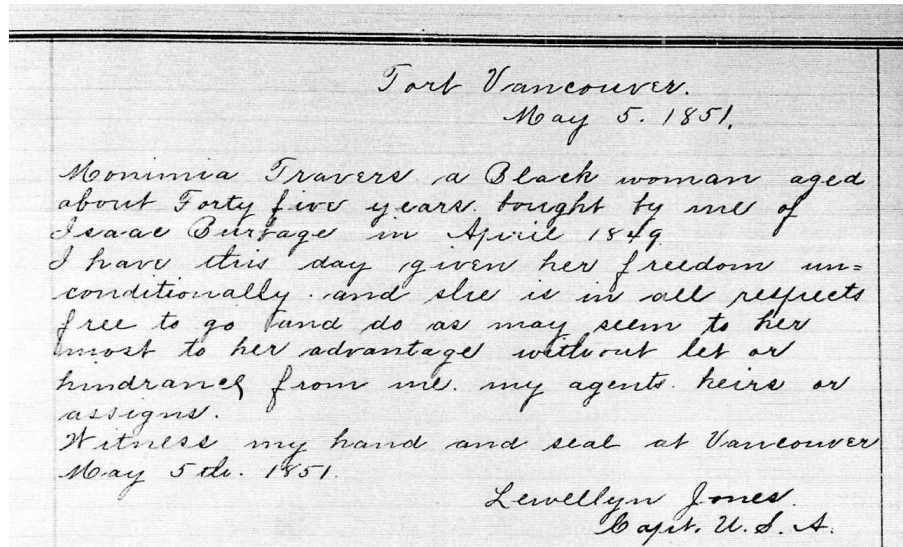 Fort Vancouver.
May 5. 1851.
Monimia Travers a Black woman aged
about Forty five years. bought by me of
Isaac Burbage in April 1849
I have this day given her freedom un=
conditionally and she is in all respects
free to go and do as may seem to her
most to her advantage without let or
hindrance from me. my agents. heirs or
assigns.
Witness my hand and seal at Vancouver
May 5th. 1851.
Lewellyn Jones.
Capt. U. S. A.